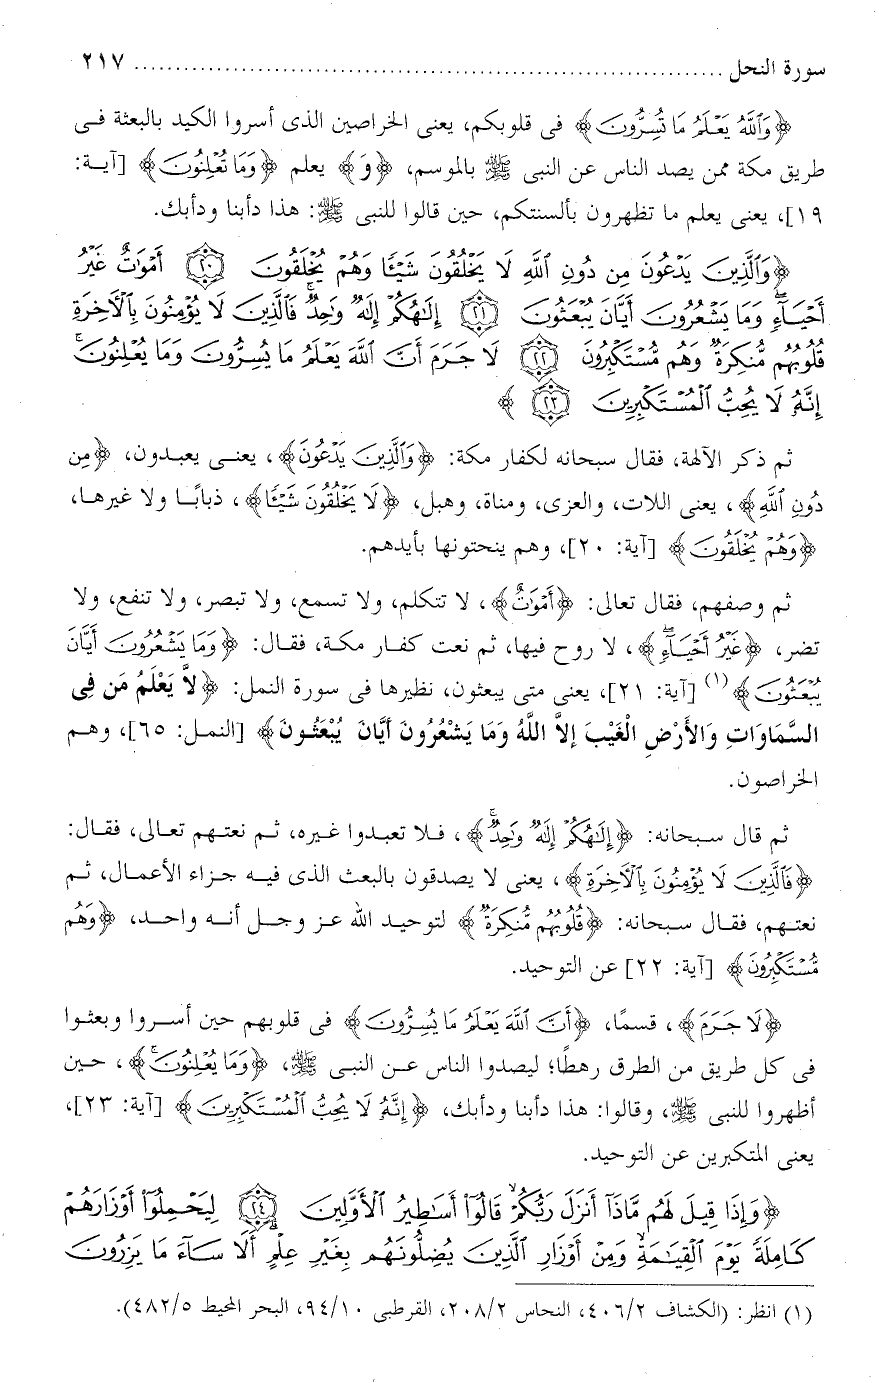 سورة النحل ........................................................................ ٢١٧
﴿وَٱللَّهُ يَعْلَمُ مَا تُسِرُّونَ﴾ فى قلوبكم، يعنى الخراصين الذى أسروا الكيد بالبعثة فى
طريق مكة ممن يصد الناس عن النبى ﷺ بالموسم، ﴿وَ﴾ يعلم ﴿وَمَا تُعْلِنُونَ﴾ [آية:
١٩]، يعنى يعلم ما تظهرون بألسنتكم، حين قالوا للنبى ﷺ: هذا دأبنا ودأبك.
﴿وَٱلَّذِينَ يَدْعُونَ مِن دُونِ ٱللَّهِ لَا يَخْلُقُونَ شَيْـًٔا وَهُمْ يُخْلَقُونَ ٢٠ أَمْوَٰتٌ غَيْرُ
أَحْيَآءٍۖ وَمَا يَشْعُرُونَ أَيَّانَ يُبْعَثُونَ ٢١ إِلَـٰهُكُمْ إِلَـٰهٌ وَٰحِدٌۚ فَٱلَّذِينَ لَا يُؤْمِنُونَ بِٱلْـَٔاخِرَةِ
قُلُوبُهُم مُّنكِرَةٌ وَهُم مُّسْتَكْبِرُونَ ٢٢ لَا جَرَمَ أَنَّ ٱللَّهَ يَعْلَمُ مَا يُسِرُّونَ وَمَا يُعْلِنُونَۚ
إِنَّهُۥ لَا يُحِبُّ ٱلْمُسْتَكْبِرِينَ ٢٣ ﴾
ثم ذكر الآلهة، فقال سبحانه لكفار مكة: ﴿وَٱلَّذِينَ يَدْعُونَ﴾، يعنى يعبدون، ﴿مِن
دُونِ ٱللَّهِ﴾، يعنى اللات، والعزى، ومناة، وهبل، ﴿لَا يَخْلُقُونَ شَيْـًٔا﴾، ذبابًا ولا غيرها،
﴿وَهُمْ يُخْلَقُونَ﴾ [آية: ٢٠]، وهم ينحتونها بأيدهم.
ثم وصفهم، فقال تعالى: ﴿أَمْوَٰتٌ﴾، لا تتكلم، ولا تسمع، ولا تبصر، ولا تنفع، ولا
تضر، ﴿غَيْرُ أَحْيَآءٍۖ﴾، لا روح فيها، ثم نعت كفار مكة، فقال: ﴿وَمَا يَشْعُرُونَ أَيَّانَ
يُبْعَثُونَ﴾(١) [آية: ٢١]، يعنى متى يبعثون، نظيرها فى سورة النمل: ﴿لاَّ يَعْلَمُ مَن فِى
السَّمَاوَاتِ وَالأَرْضِ الْغَيْبَ إلاَّ اللَّهُ وَمَا يَشْعُرُونَ أَيَّانَ يُبْعَثُونَ﴾ [النمل: ٦٥]، وهم
الخراصون.
ثم قال سبحانه: ﴿إِلَـٰهُكُمْ إِلَـٰهٌ وَٰحِدٌۚ﴾، فلا تعبدوا غيره، ثم نعتهم تعالى، فقال:
﴿فَٱلَّذِينَ لَا يُؤْمِنُونَ بِٱلْـَٔاخِرَةِ﴾، يعنى لا يصدقون بالبعث الذى فيه جزاء الأعمال، ثم
نعتهم، فقال سبحانه: ﴿قُلُوبُهُم مُّنكِرَةٌ﴾ لتوحيد الله عز وجل أنه واحد، ﴿وَهُم
مُّسْتَكْبِرُونَ﴾ [آية: ٢٢] عن التوحيد.
﴿لَا جَرَمَ﴾، قسمًا، ﴿أَنَّ ٱللَّهَ يَعْلَمُ مَا يُسِرُّونَ﴾ فى قلوبهم حين أسروا وبعثوا
فى كل طريق من الطرق رهطًا؛ ليصدوا الناس عن النبى ﷺ، ﴿وَمَا يُعْلِنُونَۚ﴾، حين
أظهروا للنبى ﷺ، وقالوا: هذا دأبنا ودأبك، ﴿إِنَّهُۥ لَا يُحِبُّ ٱلْمُسْتَكْبِرِينَ﴾ [آية: ٢٣]،
يعنى المتكبرين عن التوحيد.
﴿وَإِذَا قِيلَ لَهُم مَّاذَآ أَنزَلَ رَبُّكُمْۙ قَالُوٓا۟ أَسَـٰطِيرُ ٱلْأَوَّلِينَ ٢٤ لِيَحْمِلُوٓا۟ أَوْزَارَهُمْ
كَامِلَةً يَوْمَ ٱلْقِيَـٰمَةِۙ وَمِنْ أَوْزَارِ ٱلَّذِينَ يُضِلُّونَهُم بِغَيْرِ عِلْمٍۗ أَلَا سَآءَ مَا يَزِرُونَ
(١) انظر: (الكشاف ٤٠٦/٢، النحاس ٢٠٨/٢، القرطبى ٩٤/١٠، البحر المحيط ٤٨٢/٥).